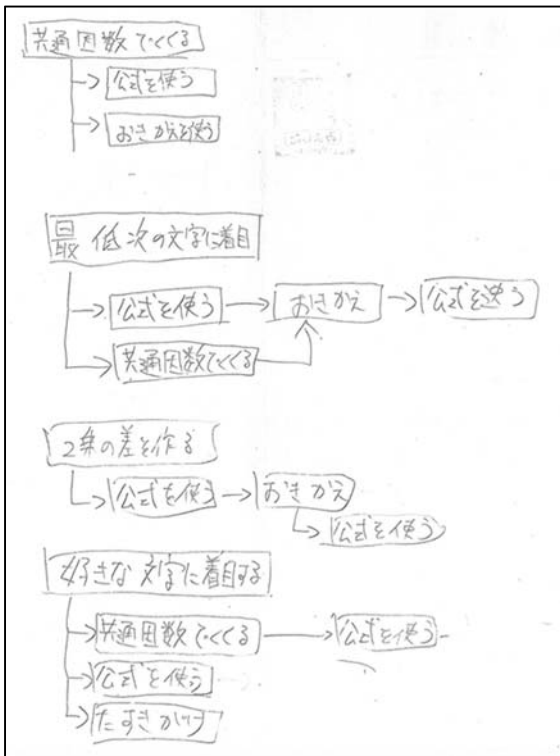 共通因数でくくる
公式を使う
おきかえを使う
最低次の文字に着目
公式を使う → おきかえ → 公式を使う
共通因数でくくる
2乗の差を作る
公式を使う → おきかえ
公式を使う
好きな文字に着目する
共通因数でくくる → 公式を使う
公式を使う
たすきがけ